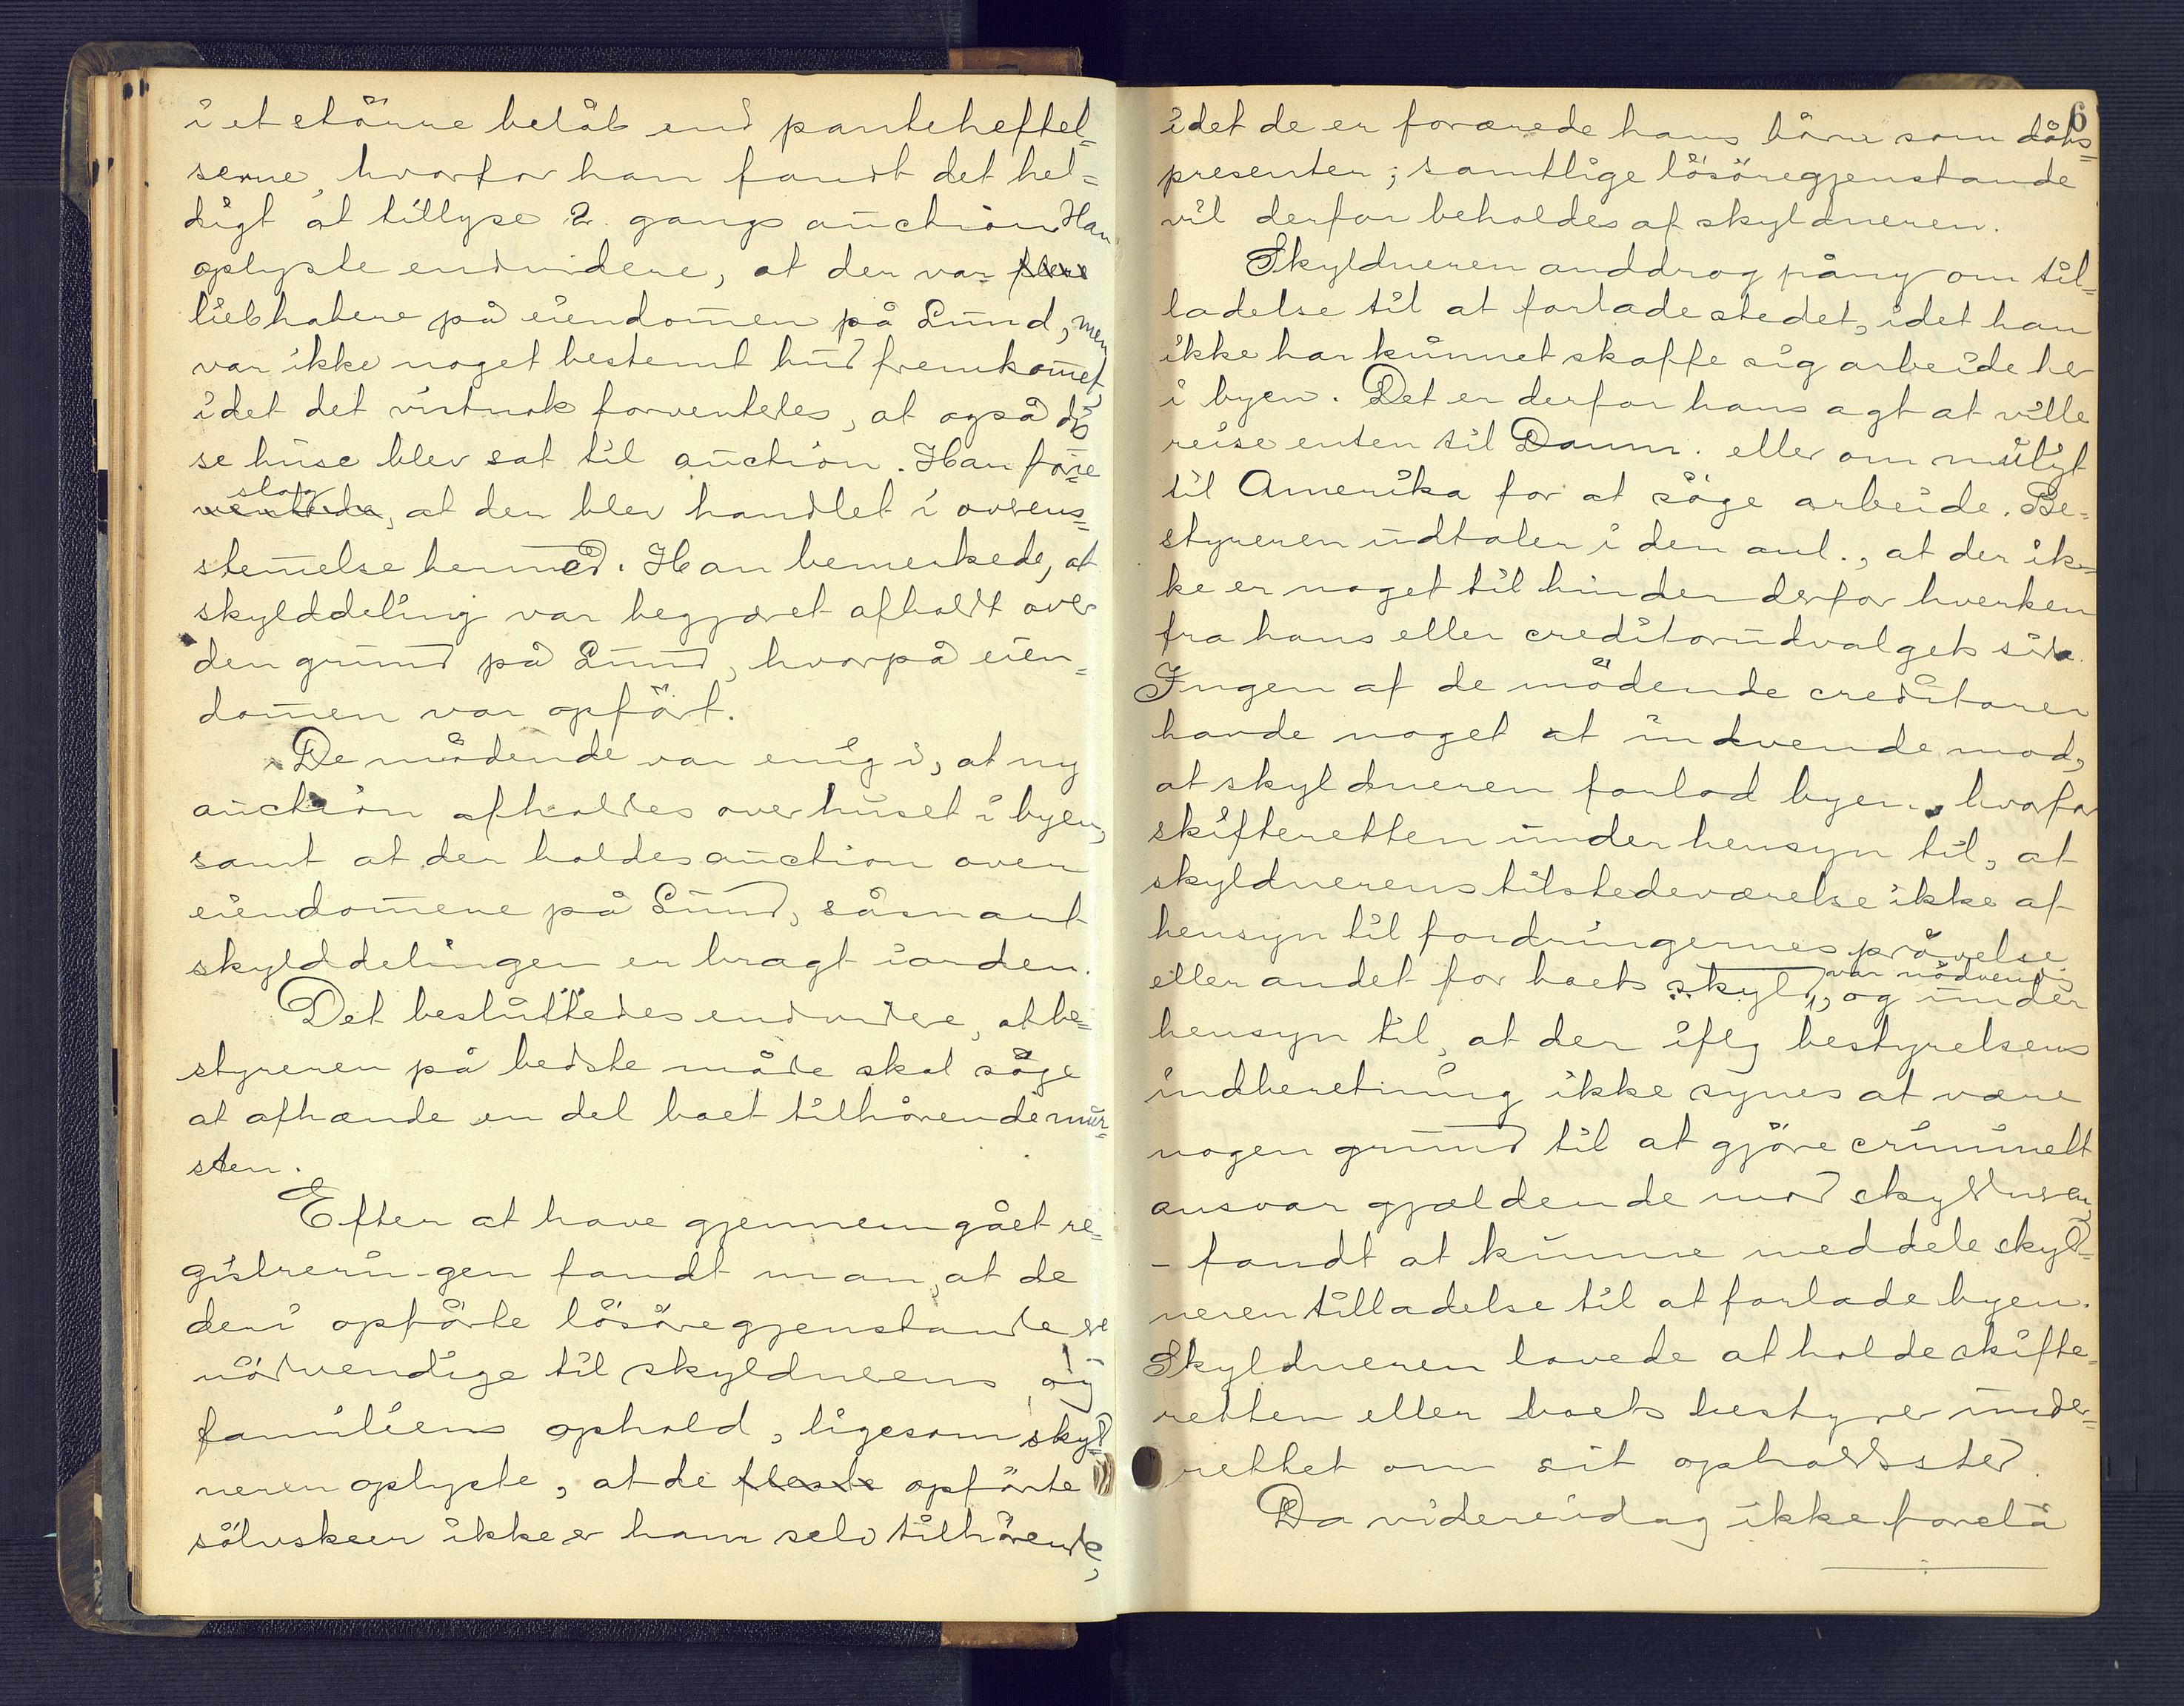 i et större belöb end panteheftel-
serne, hvorfor han fandt det hel-
digt at tillyse 2. gangs auction. Han
oplyste endvidere, at der var flere
liebhabere på eiendommen på Lund, men
var ikke noget bestemt bud fremkommet,
idet det vistnok forventedes, at også dis
se huse blev sat til auction. Han fore-
slog
ventede, at der blev handlet i overens-
stemmelse hermed. Han bemerkede, at
skylddeling var begjæret afholdt over
den grund på Lund, hvorpå eien-
dommen var opfört.
De mödende var enig i, at ny
auction afholdes over huset i byen,
samt at der holdes auction over
eiendommene på Lund, såsnart
skylddelingen er bragt iorden.
Det besluttedes endvidere, at be-
styreren på bedste måde skal söge
at afhænde en del boet tilhörende mur-
sten.
Efter at have gjennemgået re-
gistreringen fandt man, at de
deri opförte lösöregjenstande er
nödvendige til skyldnerens og
familiens ophold, ligesom skyld-
neren oplyste, at de fleste opförte
sölvskeer ikke er ham selv tilhörende,
6
idet de er forærede hans börn som dåbs-
presenter; samtlige lösöregjenstande
vil derfor beholdes af skyldneren.
Skyldneren anddrog påny om til-
ladelse til at forlade stedet, idet han
ikke har kunnet skaffe sig arbeide her
i byen. Det er derfor hans agt at ville
reise enten til Danm. eller om muligt
til Amerika for at söge arbeide. Be-
styreren udtaler i den anl., at der ik-
ke er noget til hinder derfor hverken
fra hans eller creditorudvalgets side.
Ingen af de mödende creditorer
havde noget at indvende mod,
at skyldneren forlod byen, hvorfor
skifteretten under hensyn til, at
skyldnerens tilstedeværelse ikke af
hensyn til fordringernes prövelse
var nödvendig
eller andet for boets skyld, og under
hensyn til, at der iflg bestyrelsens
indberetning ikke synes at være
nogen grund til at gjöre criminelt
ansvar gjældende mod skyldneren,
- fandt at kunne meddele skyld-
neren tilladelse til at forlade byen.
Skyldneren lovede at holde skifte-
retten eller boets bestyrer under-
rettet om sit opholdssted.
Da videre idag ikke forelå